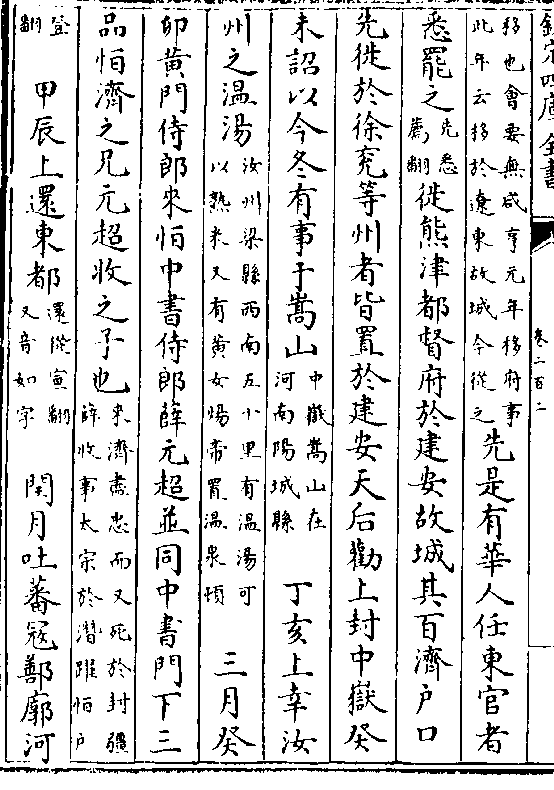 欽定四庫全書 卷二百二
移也會要無咸亨元年移府事
此年云移於遼東故城今從之
先是有華人任東官者
悉罷之
先悉
薦翻
徙熊津都督府於建安故城其百濟戶口
先徙於徐兖等州者皆置於建安天后勸上封中嶽癸
未詔以今冬有事于嵩山
中嶽嵩山在
河南陽城縣
丁亥上幸汝
州之温湯
汝州梁縣西南五十里有温湯可
以熟米又有黃女湯帝置温泉頓
三月癸
卯黃門侍郎來恒中書侍郎薛元超並同中書門下三
品恒濟之兄元超收之子也
來濟盡忠而又死於封疆
薛收事太宗於潛躍恒戶
登翻
甲辰上還東都
還從宣翻
又音如字
閏月吐蕃寇鄯廓河